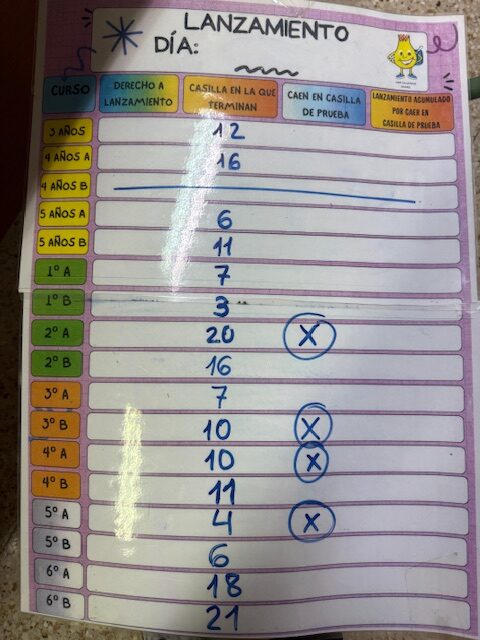 LANZAMIENTO
DÍA:
CURSO DERECHO A LANZAMIENTO CASILLA EN LA QUE TERMINAN CAEN EN CASILLA DE PRUEBA LANZAMIENTO ACUMULADO POR CAER EN CASILLA DE PRUEBA
3 AÑOS 12
4 AÑOS A 16
4 AÑOS B
5 AÑOS A 6
5 AÑOS B 11
1º A 7
1º B 3
2º A 20 X
2º B 16
3º A 7
3º B 10 X
4º A 10 X
4º B 11
5º A 4 X
5º B 6
6º A 18
6º B 21